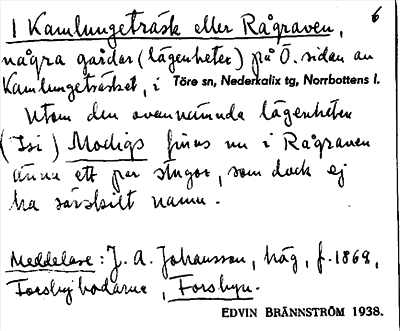 I Kamlungeträsk eller Rågraven, 6
några gårdar (lägenheter) på Ö. sidan av
Kamlungeträsket, i Töre sn, Nederkalix tg, Norrbottens l.
Utom den ovannämnda lägenheten
(Isi) Modigs finns nu i Rågraven
ännu ett par stugor, som dock ej
ha särskilt namn.
Meddelare: J. A. Johansson, häg, f. 1868,
Forsbybodarne, Forsbyn.
EDVIN BRÄNNSTRÖM 1938.